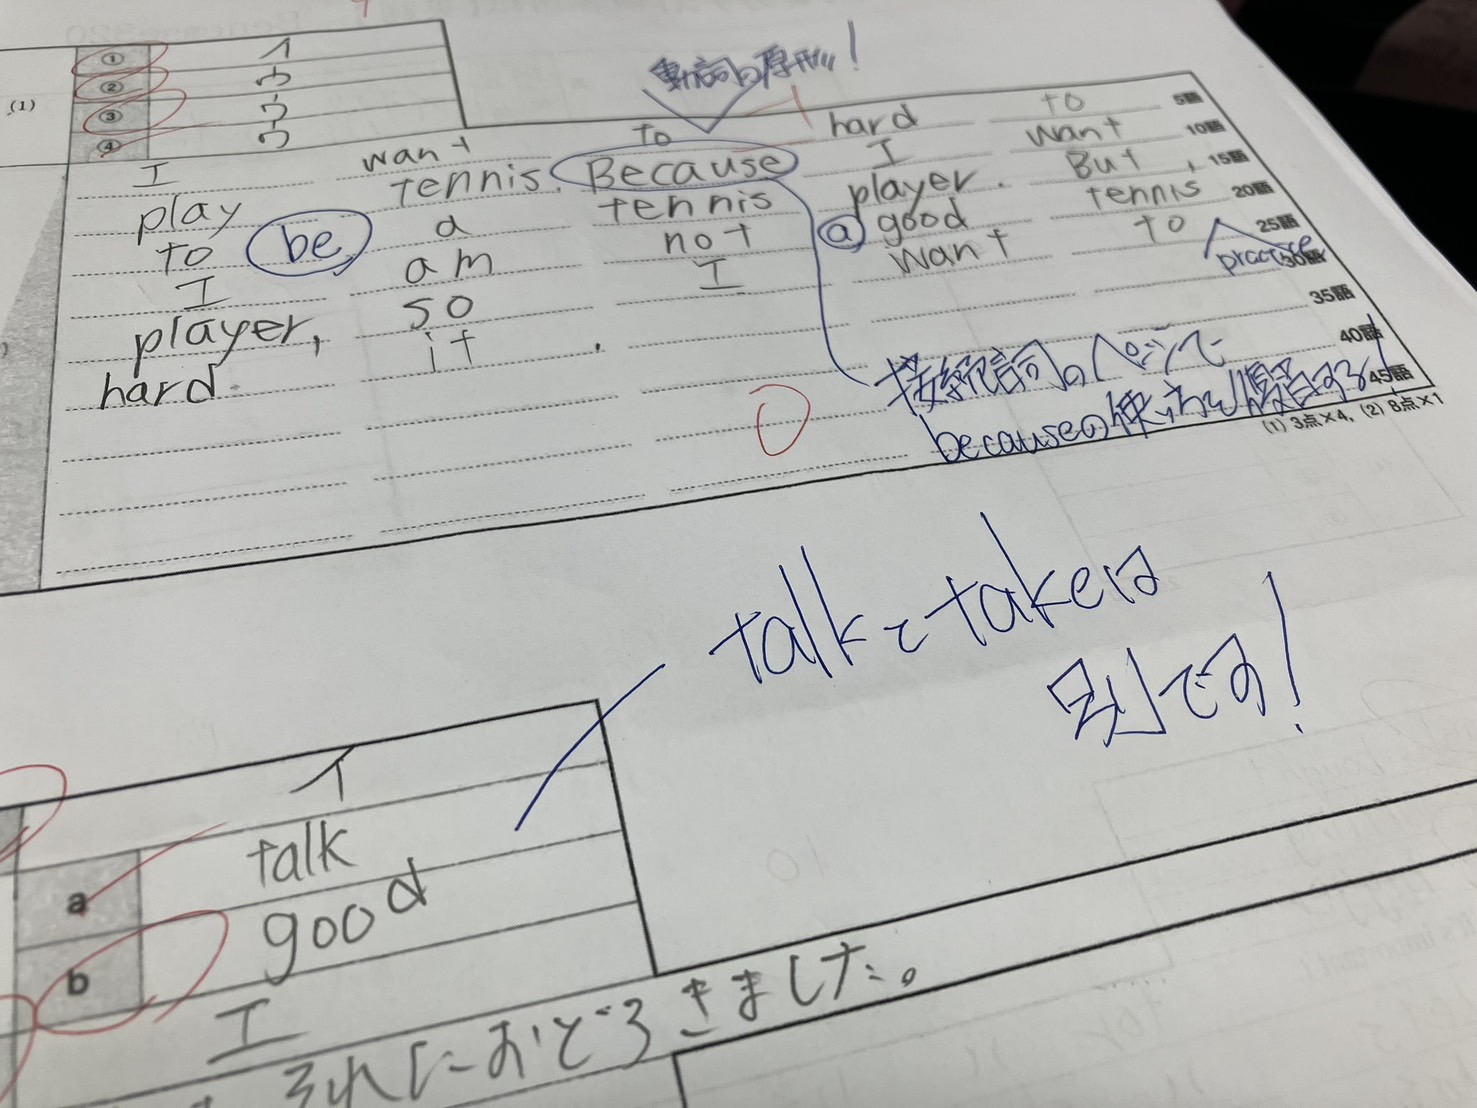 (1)
① イ
② ウ
③ ウ
④ ウ
動詞の原形!
I want to hard to 5語
play tennis. Because I want 10語
to be a tennis player. But, 15語
I am not a good tennis 20語
player, so I want to 25語
practice 30語
hard it.
35語
40語
45語
接続詞のページで
becauseの使い方を復習する!
(1) 3点×4, (2) 8点×1
talkとtakeは
別です!
イ
a talk
b good
エ
それにおどろきました。